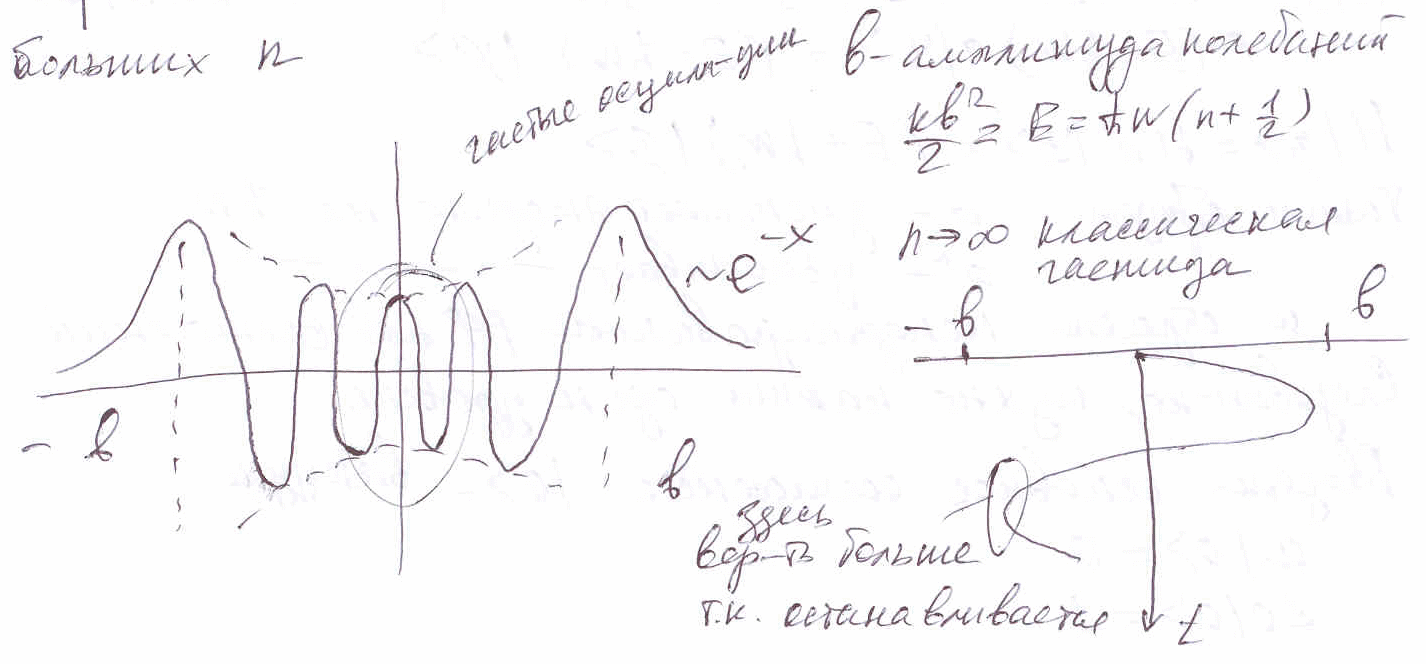 больших n
частые осцилл-ции
в - амплитуда колебаний
кв²/2 = E = ħw(n + 1/2)
n→∞ классическая
частица
~e^-x
- в
в
- в
в
здесь
вер-ть больше
т.к. останавливается
t